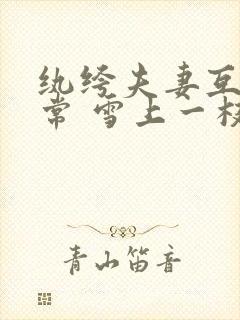 纨绔夫妻互
常 雪上一枝
青山笛音